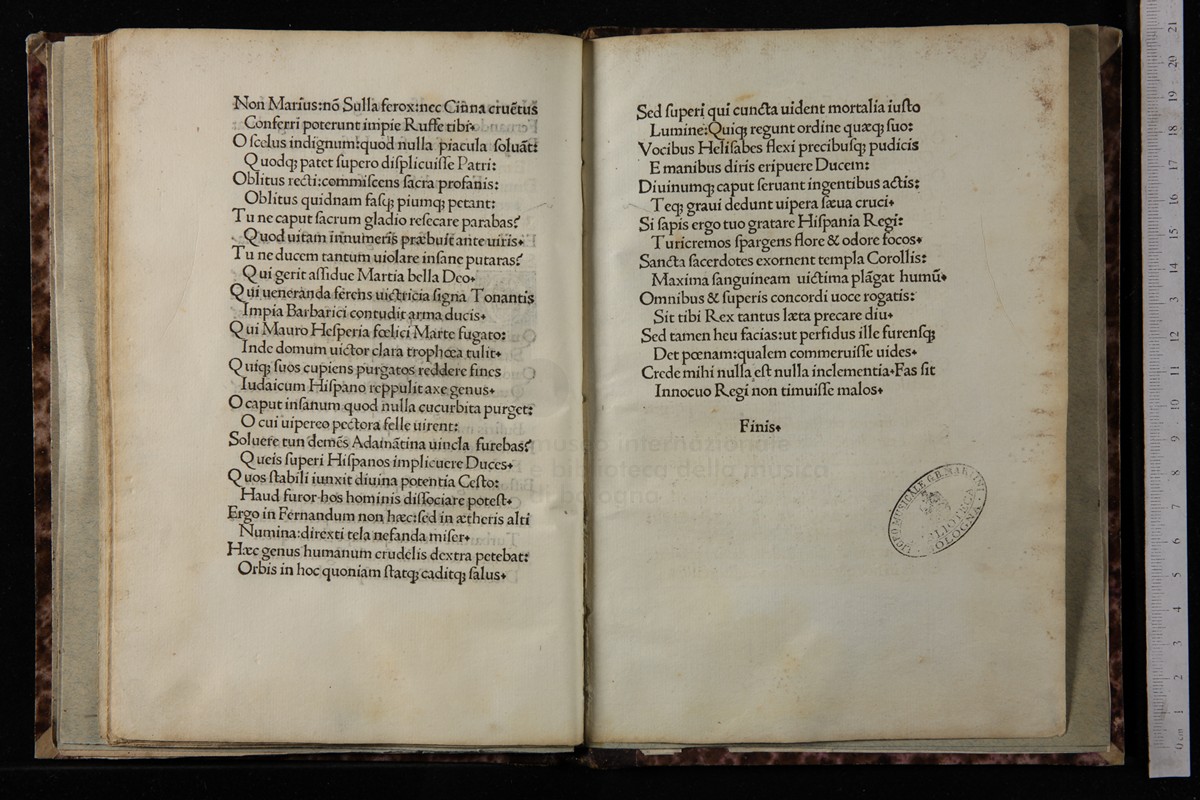 Non Marius:nō Sulla ferox:nec Cinna cruētus
Conferri poterunt impie Ruffe tibi.
O ſcelus indignum:quod nulla piacula ſoluāt:
Quodq; patet ſupero diſplicuiſſe Patri:
Oblitus recti:commiſcens ſacra profanis:
Oblitus quidnam faſq; piumq; petant:
Tu ne caput ſacrum gladio reſecare parabas?
Quod uitam innumeris præbuit ante uiris.
Tu ne ducem tantum uiolare inſane putaras?
Qui gerit aſſidue Martia bella Deo.
Qui ueneranda ferens uictricia ſigna Tonantis
Impia Barbarici contudit arma ducis.
Qui Mauro Heſperia fœlici Marte fugato:
Inde domum uictor clara trophœa tulit.
Quiq; ſuos cupiens purgatos reddere fines
Iudaicum Hiſpano reppulit axe genus.
O caput inſanum quod nulla cucurbita purget:
O cui uipereo pectora felle uirent:
Soluere tun demēs Adamātina uincla furebas?
Queis ſuperi Hiſpanos implicuere Duces.
Quos ſtabili iunxit diuina potentia Ceſto:
Haud furor hos hominis diſſociare poteſt.
Ergo in Fernandum non hæc:ſed in ætheris alti
Numina:direxti tela nefanda miſer.
Hæc genus humanum crudelis dextra petebat:
Orbis in hoc quoniam ſtatq; caditq; ſalus.
Sed ſuperi qui cuncta uident mortalia iuſto
Lumine:Quiq; regunt ordine quæq; ſuo:
Vocibus Heliſabes flexi precibuſq; pudicis
E manibus diris eripuere Ducem:
Diuinumq; caput ſeruant ingentibus actis:
Teq; graui dedunt uipera ſæua cruci.
Si ſapis ergo tuo gratare Hiſpania Regi:
Turicremos ſpargens flore & odore focos.
Sancta ſacerdotes exornent templa Corollis:
Maxima ſanguineam uictima plāgat humū.
Omnibus & ſuperis concordi uoce rogatis:
Sit tibi Rex tantus læta precare diu.
Sed tamen heu facias:ut perfidus ille furenſq;
Det pœnam:qualem commeruiſſe uides.
Crede mihi nulla eſt nulla inclementia.Fas ſit
Innocuo Regi non timuiſſe malos.
Finis.
museo internazionale
e biblioteca della musica
di bologna
LICEO MUSICALE G.B. MARTINI
BIBLIOTECA
BOLOGNA
0 cm 1 2 3 4 5 6 7 8 9 10 11 12 13 14 15 16 17 18 19 20 21